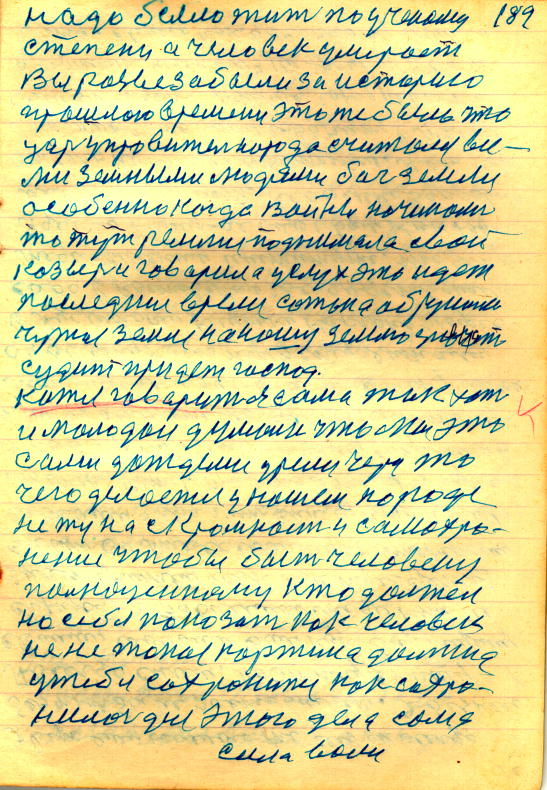 надо было жит по ученому 189
степени а человек умирает
Вы разве забыли за историю
прошлого времени это же быль что
царя правителя когда считали все-
ми земными людями бог земли
особенно когда Войны начинали
то тут религия поднимала свой
козырь и говорила вслух это идет
последнии время сотона обрушил
чужие земли на нашу землю знать
судит придет господ.
Катя говарит я сама так хот
и молодая думала что мы это
сами дождели время через то
чего делается у нашем народе
нету на скромност и самохра-
нение чтобы быт человеку
полноценному Кто должен
на себя показат как человек
не такая картина должна
у тебя сохранится как сохра-
нилос для этого дела сама
сила воли